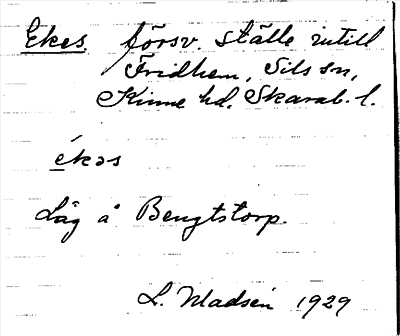 Ekes försv. ställe intill
Fridhem, Sils sn,
Kinne hd. Skarab. l.
ékəs
Låg å Bengtstorp.
L. Madsén 1929